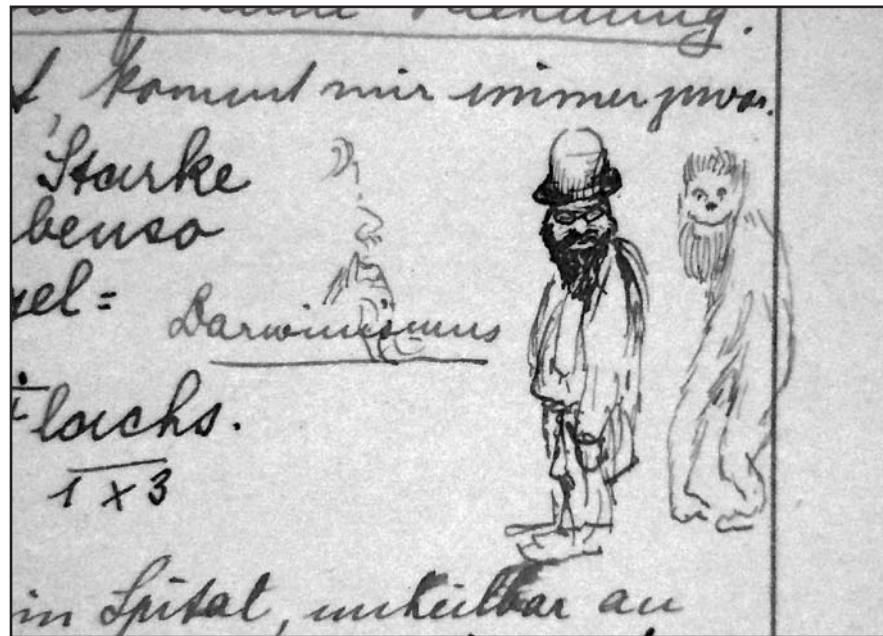 Rechnung.
kommt mir immer zuvor.
Starke
benso
gel=
Darwinismus
Flachs.
1 x 3
in Spital, unheilbar an